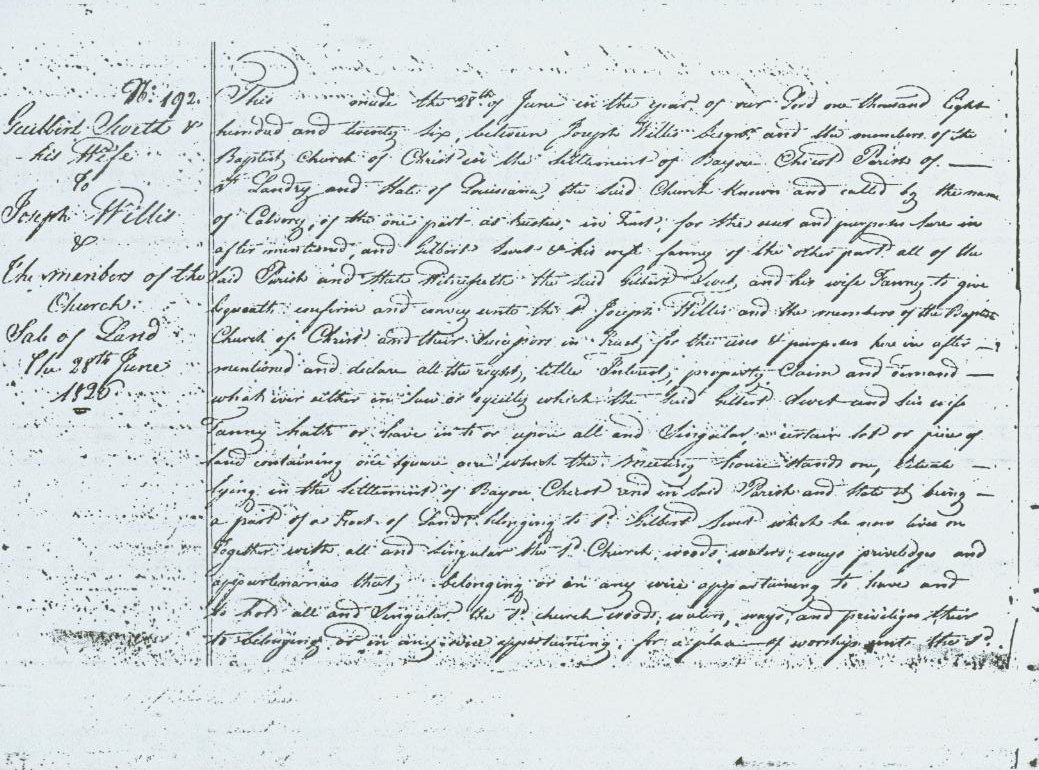 No: 192.
Guilbirt Sweth &
his Wife
to
Joseph Willis
&
The members of the
Church.
Sale of Land
The 28th June
1826
This made the 28th of June in the year of our Lord one thousand Eight
hundred and twenty six between Joseph Willis Segnr and the members of the
Baptist Church of Christ in the Settlement of Bayou Chicot Parish of —
St Landry and State of Louisiana, the said Church Known and called by the name
of Calvary, of the one part as trustees, in Trust, for the uses and purposes here in
after mentioned, and Gilbert Swet & his wife fanny of the other part all of the
Said Parish and State Witnesseth the Said Gilbert Swet, and his wife Fanney to give
bequeath confirm and convey unto the sd Joseph Willis and the members of the Baptist
Church of Christ and their Successors in Trust, for the uses & purposes here in after —
mentioned and declare all the right, title Interest, property Claim and demand —
what ever either in Law or equity which the Said Gilbert Swet and his wife
Fanny hath or have in to or upon all and Singular, a certain lot or piece of
land containing one square acre which the meeting house stands on, Situate —
lying in the Settlement of Bayou Chicot and in Said Parish and State it being —
a part of a Tract of Land belonging to sd Gilbert Swet which he now lives on
Together with all and Singular the sd Church, woods, waters, ways priviledges and
appurtenances that, belonging or in any wise appertaining to have and
to hold all and Singular the sd church woods, waters, ways, and priviliges their
to belonging or in any wise appertaining, for a place of worship unto the sd.